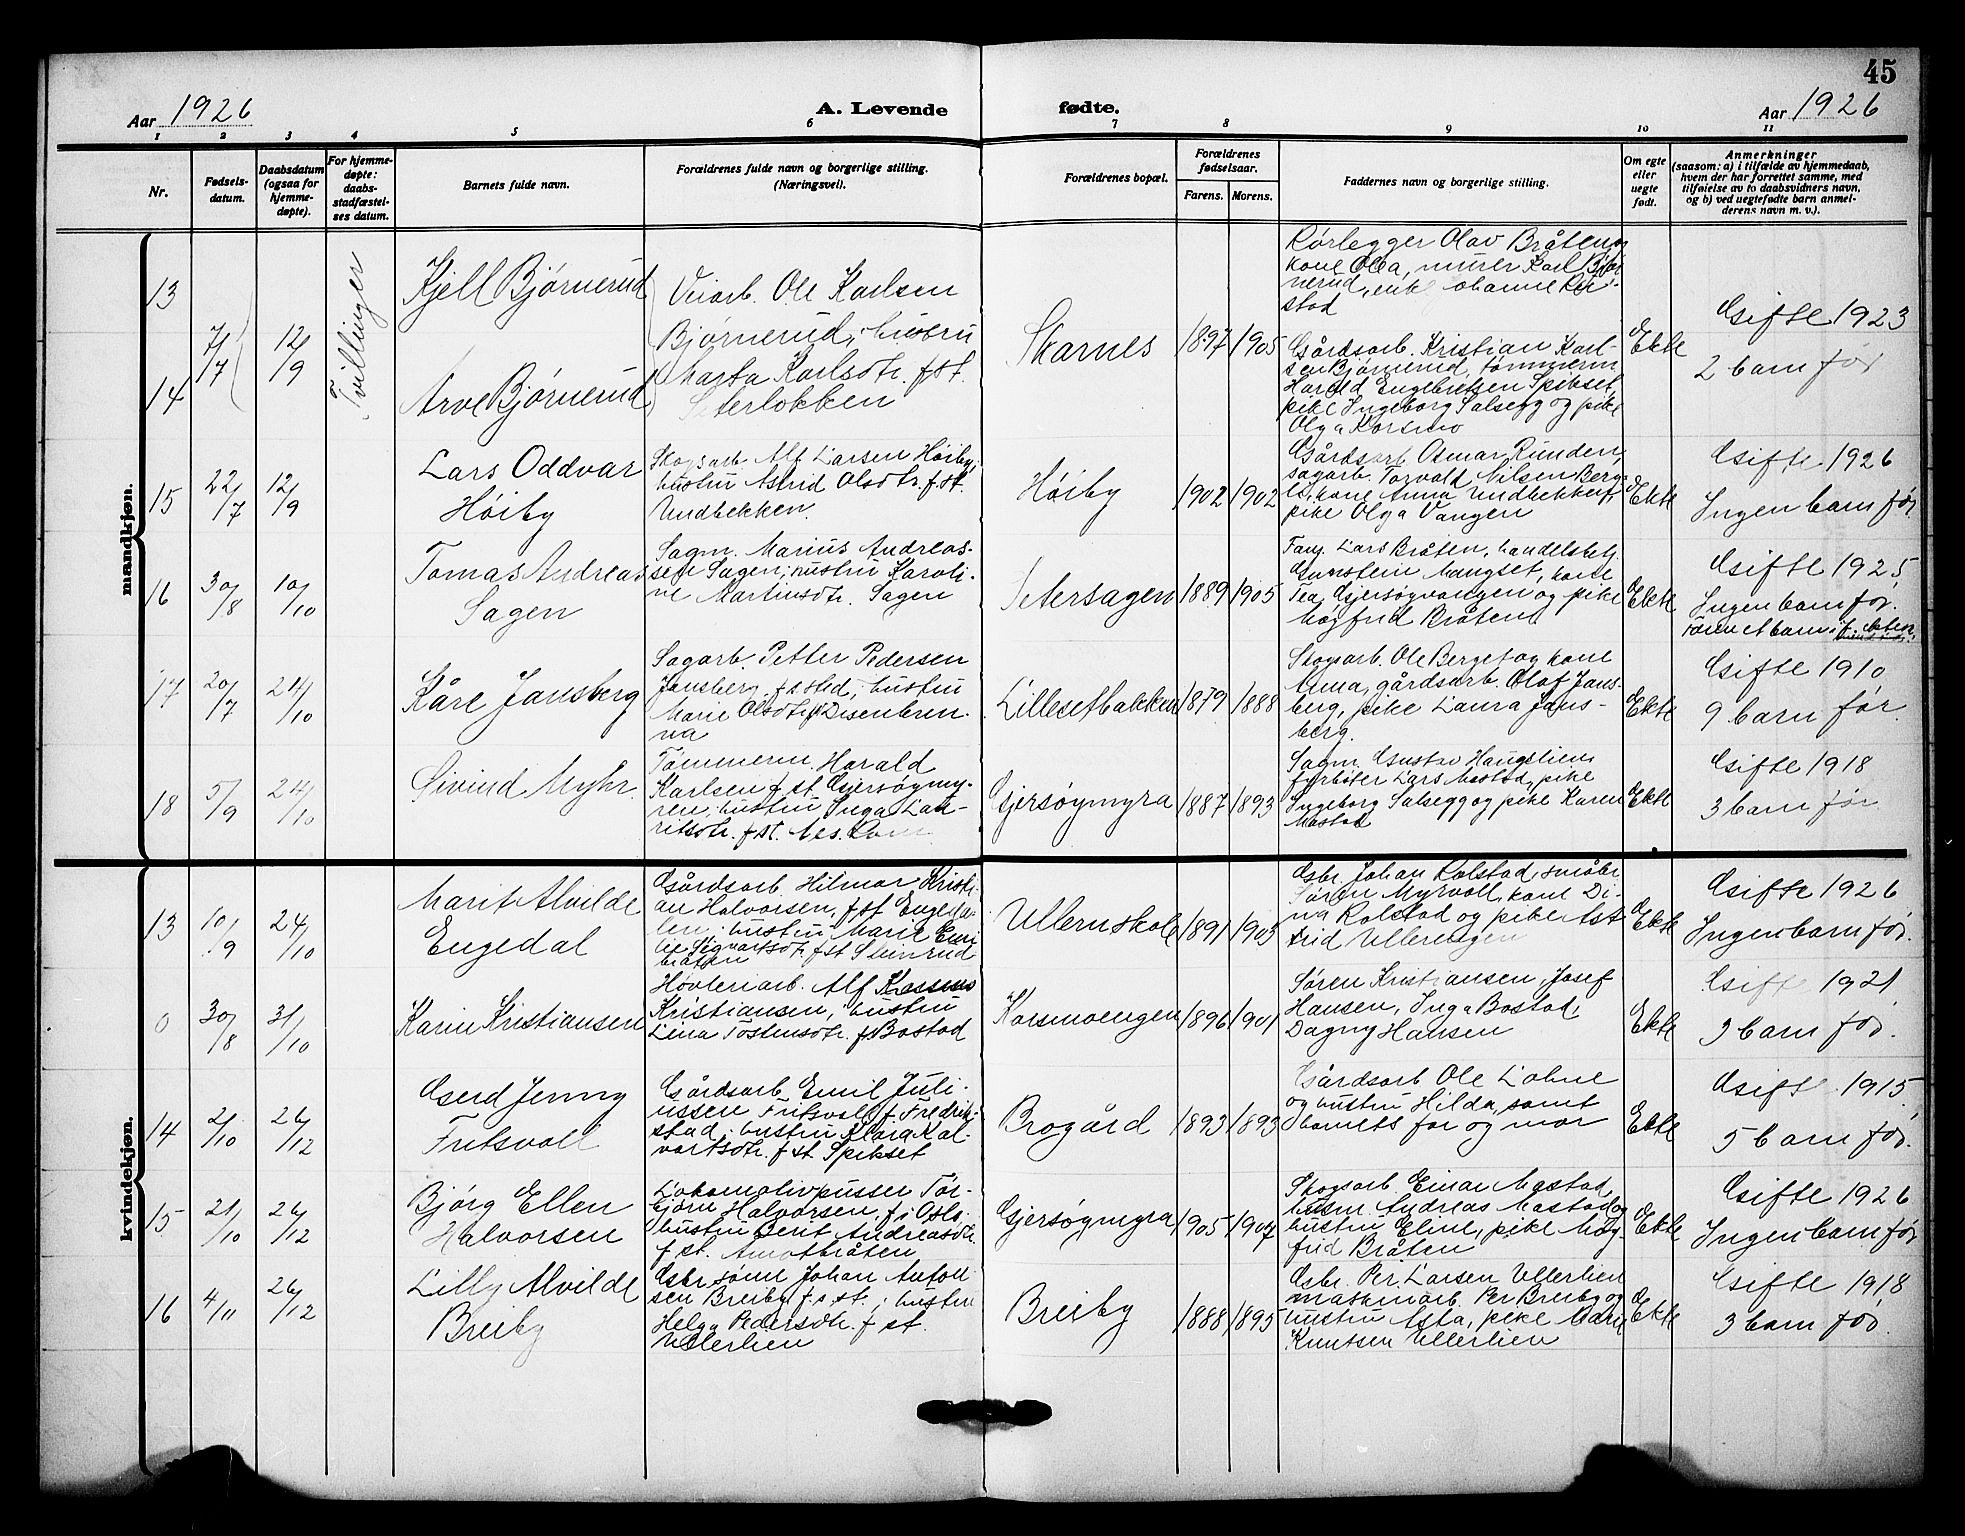 45
Aar 1926
A. Levende
fødte.
Aar 1926
1 2 3 4 5 6 7 8 9 10 11
Nr.
Fødsels-
datum.
Daabsdatum
(ogsaa for
hjemme-
døpte).
For hjemme-
døpte:
daabs-
stadfæstel-
ses datum.
Barnets fulde navn.
Forældrenes fulde navn og borgerlige stilling.
(Næringsvei).
Forældrenes bopæl.
Forældrenes
fødselsaar.
Farens. Morens.
Faddernes navn og borgerlige stilling.
Om egte
eller
uegte
født.
Anmerkninger
(saasom: a) i tilfælde av hjemmedaab,
hvem der har forrettet samme, med
tilføielse av to daabsvidners navn,
og b) ved uegtefødte barn anmel-
derens navn m. v.).
mandkjøn.
13
14
7/7
12/9
Tvillinger
Kjell Bjørnerud
Arve Bjørnerud
Veiarb. Ole Karlsen
Bjørnerud, hustru
Marta Karlsdtr. f. st.
Seterlokken
Skarnes
1897
1905
Rørlegger Olav Bråten og
kone Olea, murer Karl Bjør-
nerud, enke Johanne
stad
Gårdsarb. Kristian Karl-
sen Bjørnerud, tømmerm
Harald Engebretsen Spikset,
pike Ingeborg Salsegg og pike
Olga Korsmo
Ekte
Gifte 1923
2 barn før
15
22/7
12/9
Lars Oddvar
Høiby
Skogsarb. Alf Larsen Høiby,
hustru Astrid Olsdtr. f. st.
Undbekken.
Høiby
1902
1902
Gårdsarb. Osmar Runden,
sagarb. Torvald Nilsen Berg-
li, kone Anna Undbekken,
pike Olga Vangen
Ekte
Gifte 1926
Ingen barn før.
16
30/8
10/10
Tomas Andreas
Sagen
Sagm. Marius Andreas-
sen Sagen, hustru Karoli-
ne Martinsdtr. Sagen
Setersagen
1889
1905
Fang. Lars Bråten, handelsbetj.
Gunstein Mangset, kone
Tea Gjersøyvangen og pike
Magfrid Bråten
Ekte
Gifte 1925,
Ingen barn før.
17
20/7
24/10
Kåre Jansberg
Sagarb. Petter Pedersen
Jansberg f. s sted, hustru
Marie Olsdtr. f. Disenbren-
na
Lillesetbakken
1879
1888
Skogsarb. Ole Berget og kone
Anna, gårdsarb. Olaf Jans-
berg, pike Laura Jans-
berg.
Ekte
Gifte 1910
9 barn før.
18
5/9
24/10
Øivind Myhr.
Tømmerm. Harald
Karlsen f. st. Gjersøymy-
ren, hustru Inga Lau-
ritsdtr. f. st. Nes. Rom
Gjersøymyra
1887
1893
Sagm. Gustav Haugslien,
fyrbøter Lars Mastad, pike
Ingeborg Salsegg og pike Karen
Mastad
Ekte
Gifte 1918
3 barn før
kvindekjøn.
13
10/9
24/10
Marit Alvilde
Engedal
Gårdsarb. Hilmar Kristi-
an Halvorsen, f. st Engeda-
len, hustru Marie Emi-
lie Sigvartsdtr. f. st Steinrud
bråten
Ullernskole
1891
1903
Gsbr. Johan Rolstad, småbr
Søren Myrvoll, kone Di-
na Rolstad og pike Ast-
rid Ullerengen
Ekte
Gifte 1926
Ingen barn før.
0
30/8
31/10
Karin Kristiansen
Høvleriarb. Alf
Kristiansen, hustru
Lina Tostensdtr. f. Bostad
Korsmoengen
1896
1901
Søren Kristiansen, Josef
Hansen, Inga Bostad,
Dagny Hansen
Ekte
Gifte 1921
3 barn før.
14
2/10
26/12
Gerd Jenny
Fritsvoll
Gårdsarb. Emil Juli-
ussen Fritsvoll f. Fredrik-
stad, hustru Klara Hal-
vartsdtr. f. st Spikset
Brogård
1893
1893
Gårdsarb Ole Løhne
og hustru Hilda, samt
barnets far og mor
Ekte
Gifte 1915
5 barn før.
15
21/10
26/12
Bjørg Ellen
Halvorsen
Lokomotivpusser Tor-
bjørn Halvorsen, f. i Oslo,
hustru Berit Andreasdtr.
f. st. Amotbråten
Gjersøymyra
1905
1904
Skogsarb. Einar Mastad,
husm. Andreas Mastad og
hustru Eline, pike Mag-
frid Bråten
Ekte
Gifte 1926
Ingen barn før
16
4/11
26/12
Lilly Alvilde
Breiby
Gsbr.sønn Johan Anton
sen Breiby f. s. st., hustru
Helga Pedersdtr. f. st.
Ullerlien
Breiby
1888
1895
Gsbr. Per Larsen Ullerlien
maskinarb. Per Breiby og
hustru Asta, pike Mary
Knutsen Ullerlien
Ekte
Gifte 1918
3 barn før.